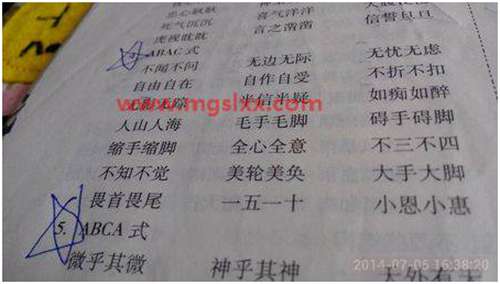 忠心耿耿 喜气洋洋 大腹便便
死气沉沉 言之凿凿 信誓旦旦
虎视眈眈
4. ABAC 式
不闻不问 无边无际 无忧无虑
自由自在 自作自受 不折不扣
半信半疑 如痴如醉
www.mgslxx.com
人山人海 毛手毛脚 碍手碍脚
缩手缩脚 全心全意 不三不四
不知不觉 美轮美奂 大手大脚
畏首畏尾 一五一十 小恩小惠
5. ABCA 式
微乎其微 神乎其神 天外有天
2014-07-05 16:38:20